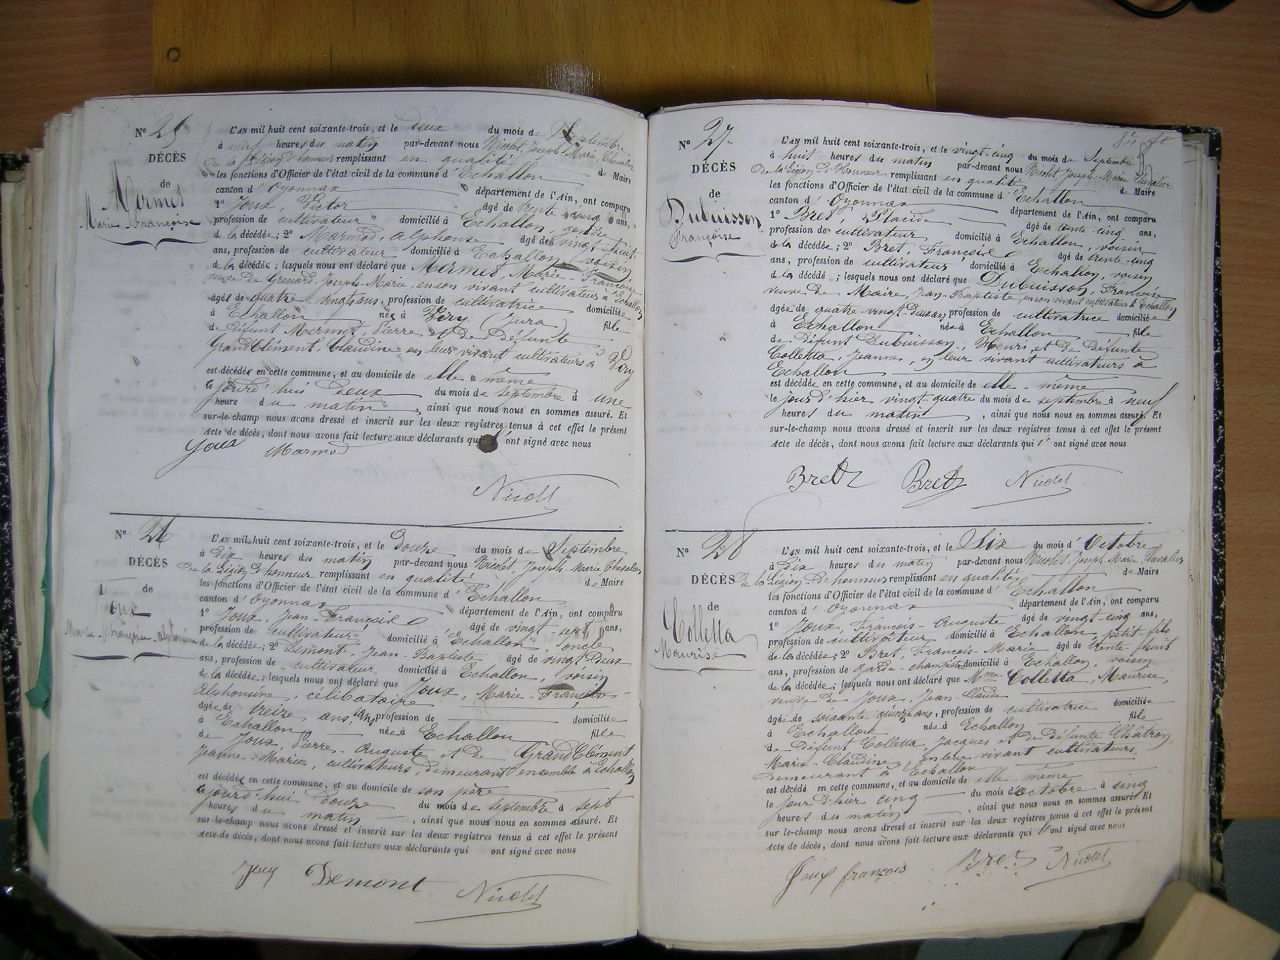 N° 25
DÉCÈS
de
Mermet
Marie Françoise
L'AN mil huit cent soixante-trois, et le deux du mois de Septembre
à neuf heures du matin par-devant nous Nicolet, Joseph Marie, Chevalier
de la Légion d'honneur remplissant en qualité de Maire
les fonctions d'Officier de l'état civil de la commune d'Echallon
canton d'Oyonnax département de l'Ain, ont comparu
1° Joux Victor âgé de trente cinq ans,
profession de cultivateur domicilié à Echallon, gendre
de la décédée; 2° Marmod, Alphonse âgé de vingt huit
ans, profession de cultivateur domicilié à Echallon, voisin
de la décédée; lesquels nous ont déclaré que Mermet, Marie Françoise
veuve de Joseph Marie en son vivant cultivateurs à Echallon
âgée de quatre vingts ans, profession de cultivatrice domiciliée
à Echallon née à Viry (Jura) fille
de défunt Mermet, Pierre et de défunte
Grandclément, Claudine en leur vivant cultivateurs à Viry
est décédée en cette commune, et au domicile de elle même
le jourd'hui deux du mois de septembre à une
heure du matin, ainsi que nous nous en sommes assuré. Et
sur-le-champ nous avons dressé et inscrit sur les deux registres tenus à cet effet le présent
acte de décès, dont nous avons fait lecture aux déclarants qui ont signé avec nous
Joux Marmod
Nicolet
N° 26
DÉCÈS
de
Joux
Marie Françoise Alphonsine
L'AN mil huit cent soixante-trois, et le douze du mois de Septembre
à dix heures du matin par-devant nous Nicolet, Joseph Marie Chevalier
de la Légion d'honneur remplissant en qualité de Maire
les fonctions d'Officier de l'état civil de la commune d'Echallon
canton d'Oyonnax département de l'Ain, ont comparu
1° Joux, Jean-François âgé de vingt sept ans,
profession de cultivateur domicilié à Echallon, oncle
de la décédée; 2° Demont Jean Baptiste âgé de vingt deux
ans, profession de cultivateur domicilié à Echallon, voisin
de la décédée; lesquels nous ont déclaré que Joux, Marie-Françoise
Alphonsine, célibataire
âgée de treize ans, profession de domiciliée
à Echallon née à Echallon fille
de Joux, Pierre-Auguste et de Grandclément
Jeanne-Marie, cultivateurs, demeurant ensemble à Echallon
est décédée en cette commune, et au domicile de son père
le jourd'hui douze du mois de septembre à sept
heures du matin, ainsi que nous nous en sommes assuré. Et
sur-le-champ nous avons dressé et inscrit sur les deux registres tenus à cet effet le présent
acte de décès, dont nous avons fait lecture aux déclarants qui ont signé avec nous
Joux Demont Nicolet
N° 27
DÉCÈS
de
Dubuisson
Françoise
L'AN mil huit cent soixante-trois, et le vingt-cinq du mois de Septembre
à huit heures du matin par-devant nous Nicolet Joseph Marie Chevalier
de la Légion d'honneur remplissant en qualité de Maire
les fonctions d'Officier de l'état civil de la commune d'Echallon
canton d'Oyonnax département de l'Ain, ont comparu
1° Bret Placide âgé de trente cinq ans,
profession de cultivateur domicilié à Echallon, voisin
de la décédée; 2° Bret, François âgé de trente-cinq
ans, profession de cultivateur domicilié à Echallon, voisin
de la décédée; lesquels nous ont déclaré que Dubuisson, Françoise
veuve de Maire, Jean-Baptiste, en son vivant cultivateur à Echallon
âgée de quatre vingt ans, profession de cultivatrice domiciliée
à Echallon née à Echallon fille
de défunt Dubuisson, Henri et de défunte
Colletta, Jeanne, en leur vivant cultivateurs à
Echallon
est décédée en cette commune, et au domicile de elle-même
le jour d'hier vingt quatre du mois de septembre à neuf
heures du matin, ainsi que nous nous en sommes assuré. Et
sur-le-champ nous avons dressé et inscrit sur les deux registres tenus à cet effet le présent
acte de décès, dont nous avons fait lecture aux déclarants qui ont signé avec nous
Bret Bret Nicolet
N° 28
DÉCÈS
de
Colletta
Maurise
L'AN mil huit cent soixante-trois, et le Six du mois d'Octobre
à dix heures du matin par-devant nous Nicolet, Joseph Marie Chevalier
de la Légion d'honneur remplissant en qualité de Maire
les fonctions d'Officier de l'état civil de la commune d'Echallon
canton d'Oyonnax département de l'Ain, ont comparu
1° Joux, François-Auguste âgé de vingt cinq ans,
profession de cultivateur domicilié à Echallon, petit fils
de la décédée; 2° Bret, François Marie âgé de trente huit
ans, profession de garde-champêtre domicilié à Echallon, voisin
de la décédée; lesquels nous ont déclaré que Colletta, Maurise,
veuve de Joux, Jean Claude
âgée de soixante quinze ans, profession de cultivatrice domiciliée
à Echallon née à Echallon fille
de défunt Colletta, Jacques et de défunte Chatron
Marie-Claudine en leur vivant cultivateurs
demeurant à Echallon
est décédé en cette commune, et au domicile de elle même
le jour d'hier cinq du mois d'octobre à cinq
heures du matin, ainsi que nous nous en sommes assuré. Et
sur-le-champ nous avons dressé et inscrit sur les deux registres tenus à cet effet le présent
acte de décès, dont nous avons fait lecture aux déclarants qui ont signé avec nous
Joux françois Bret Nicolet